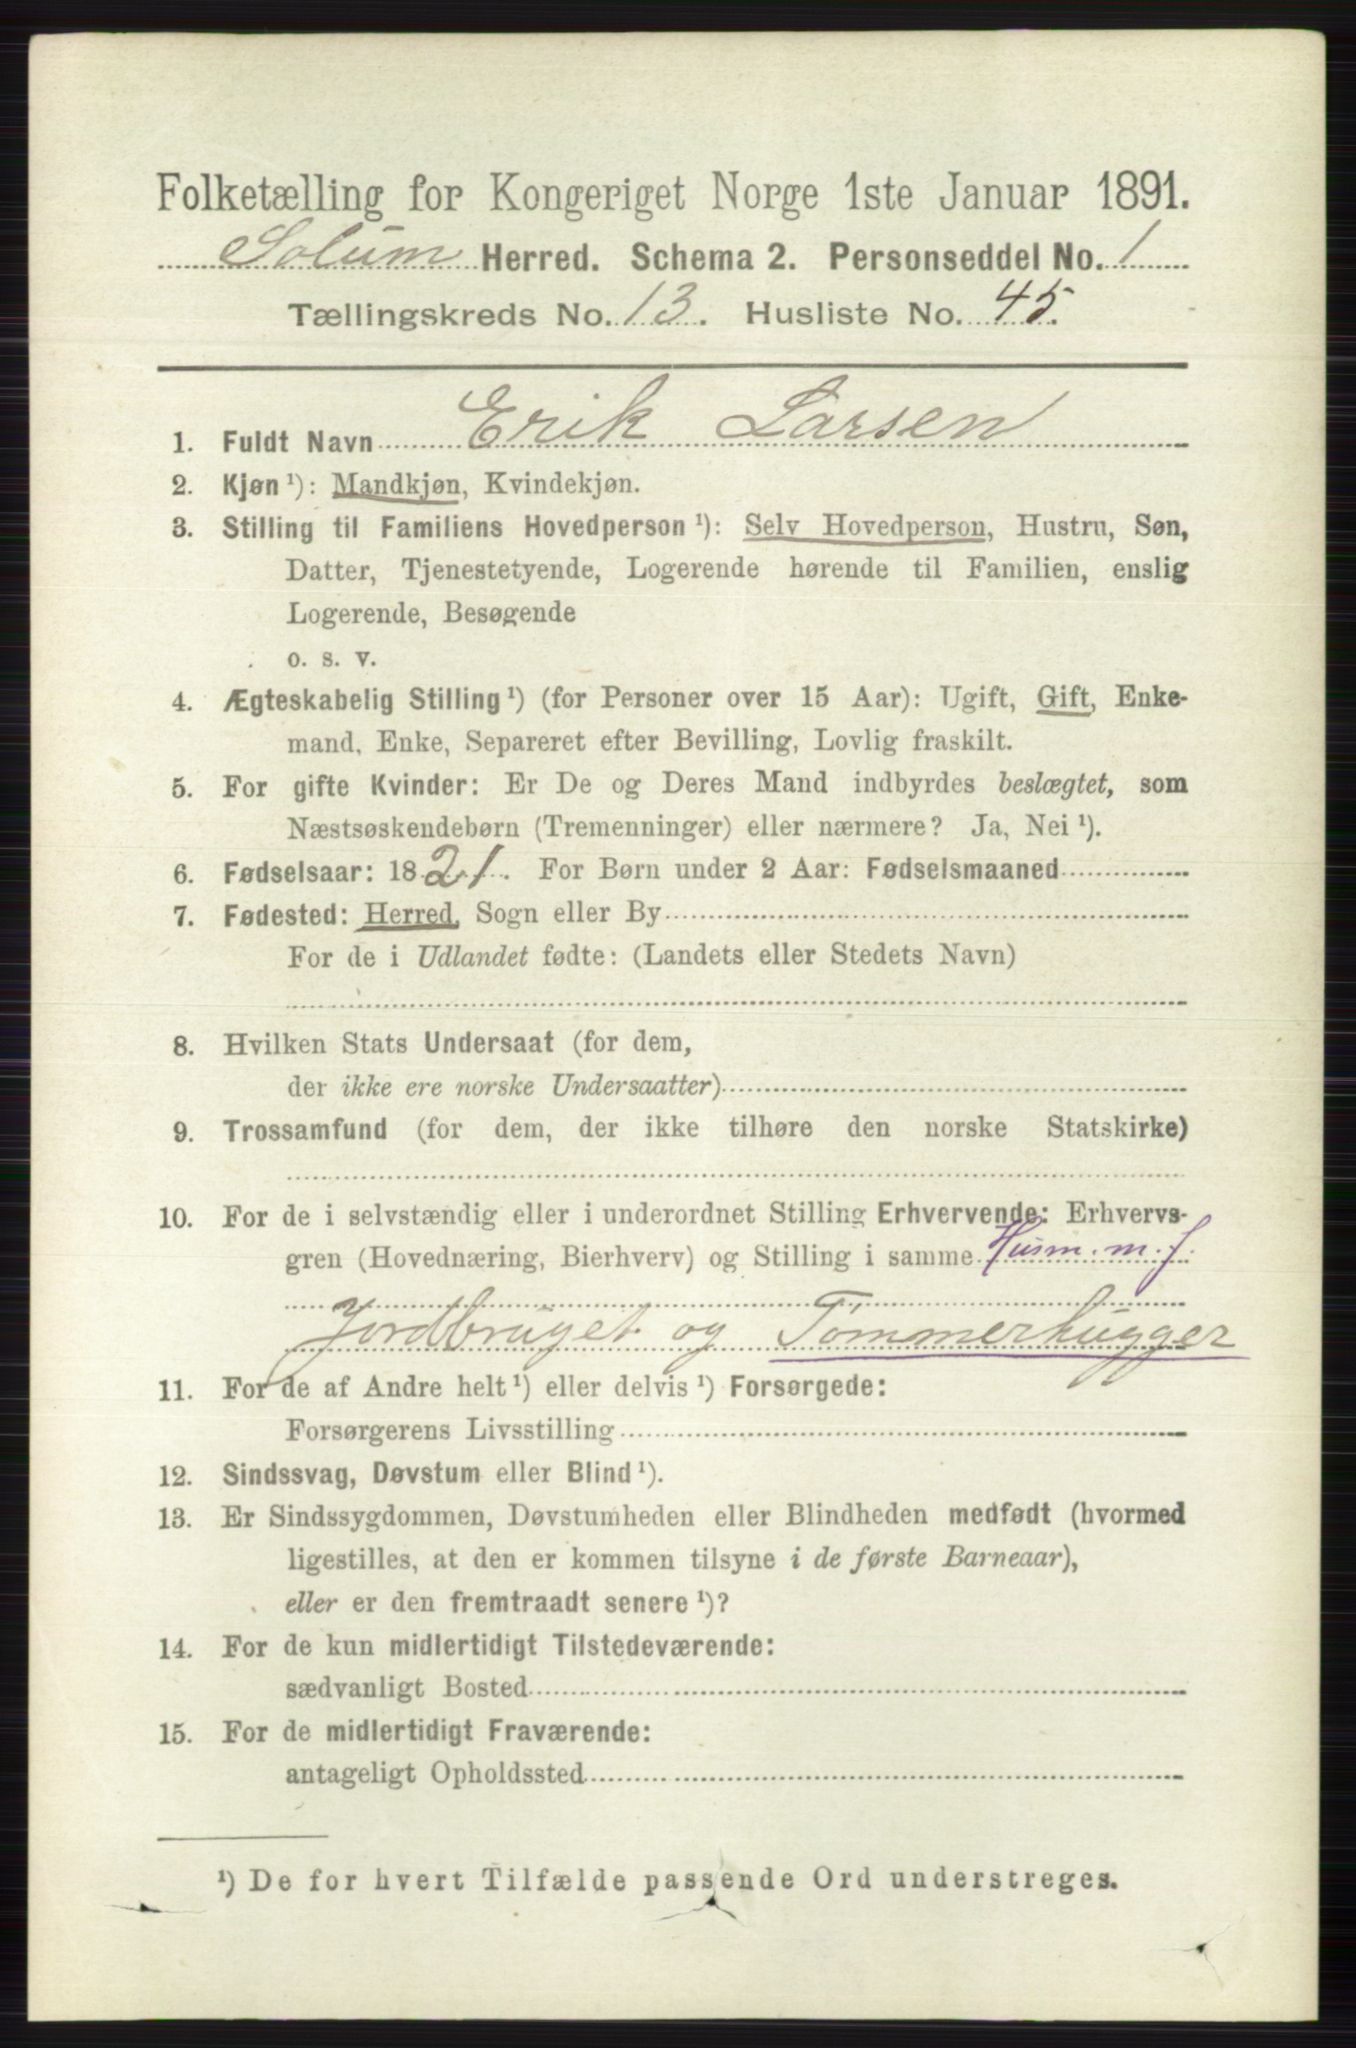 Folketælling for Kongeriget Norge 1ste Januar 1891.
Solum Herred. Schema 2. Personseddel No. 1
Tællingskreds No. 13. Husliste No. 45.
1. Fuldt Navn Erik Larsen
2. Kjøn ¹): Mandkjøn, Kvindekjøn.
3. Stilling til Familiens Hovedperson ¹): Selv Hovedperson, Hustru, Søn,
Datter, Tjenestetyende, Logerende hørende til Familien, enslig
Logerende, Besøgende
o. s. v.
4. Ægteskabelig Stilling ¹) (for Personer over 15 Aar): Ugift, Gift, Enke-
mand, Enke, Separeret efter Bevilling, Lovlig fraskilt.
5. For gifte Kvinder: Er De og Deres Mand indbyrdes beslægtet, som
Næstsøskendebørn (Tremenninger) eller nærmere? Ja, Nei ¹).
6. Fødselsaar: 1821. For Børn under 2 Aar: Fødselsmaaned
7. Fødested: Herred, Sogn eller By
For de i Udlandet fødte: (Landets eller Stedets Navn)
8. Hvilken Stats Undersaat (for dem,
der ikke ere norske Undersaatter)
9. Trossamfund (for dem, der ikke tilhøre den norske Statskirke)
10. For de i selvstændig eller i underordnet Stilling Erhvervende: Erhvervs-
gren (Hovednæring, Bierhverv) og Stilling i samme Husm. m. J.
Jordbruget og Tømmerhugger
11. For de af Andre helt ¹) eller delvis ¹) Forsørgede:
Forsørgerens Livsstilling
12. Sindssvag, Døvstum eller Blind ¹).
13. Er Sindssygdommen, Døvstumheden eller Blindheden medfødt (hvormed
ligestilles, at den er kommen tilsyne i de første Barneaar),
eller er den fremtraadt senere ¹)?
14. For de kun midlertidigt Tilstedeværende:
sædvanligt Bosted
15. For de midlertidigt Fraværende:
antageligt Opholdssted
¹) De for hvert Tilfælde passende Ord understreges.